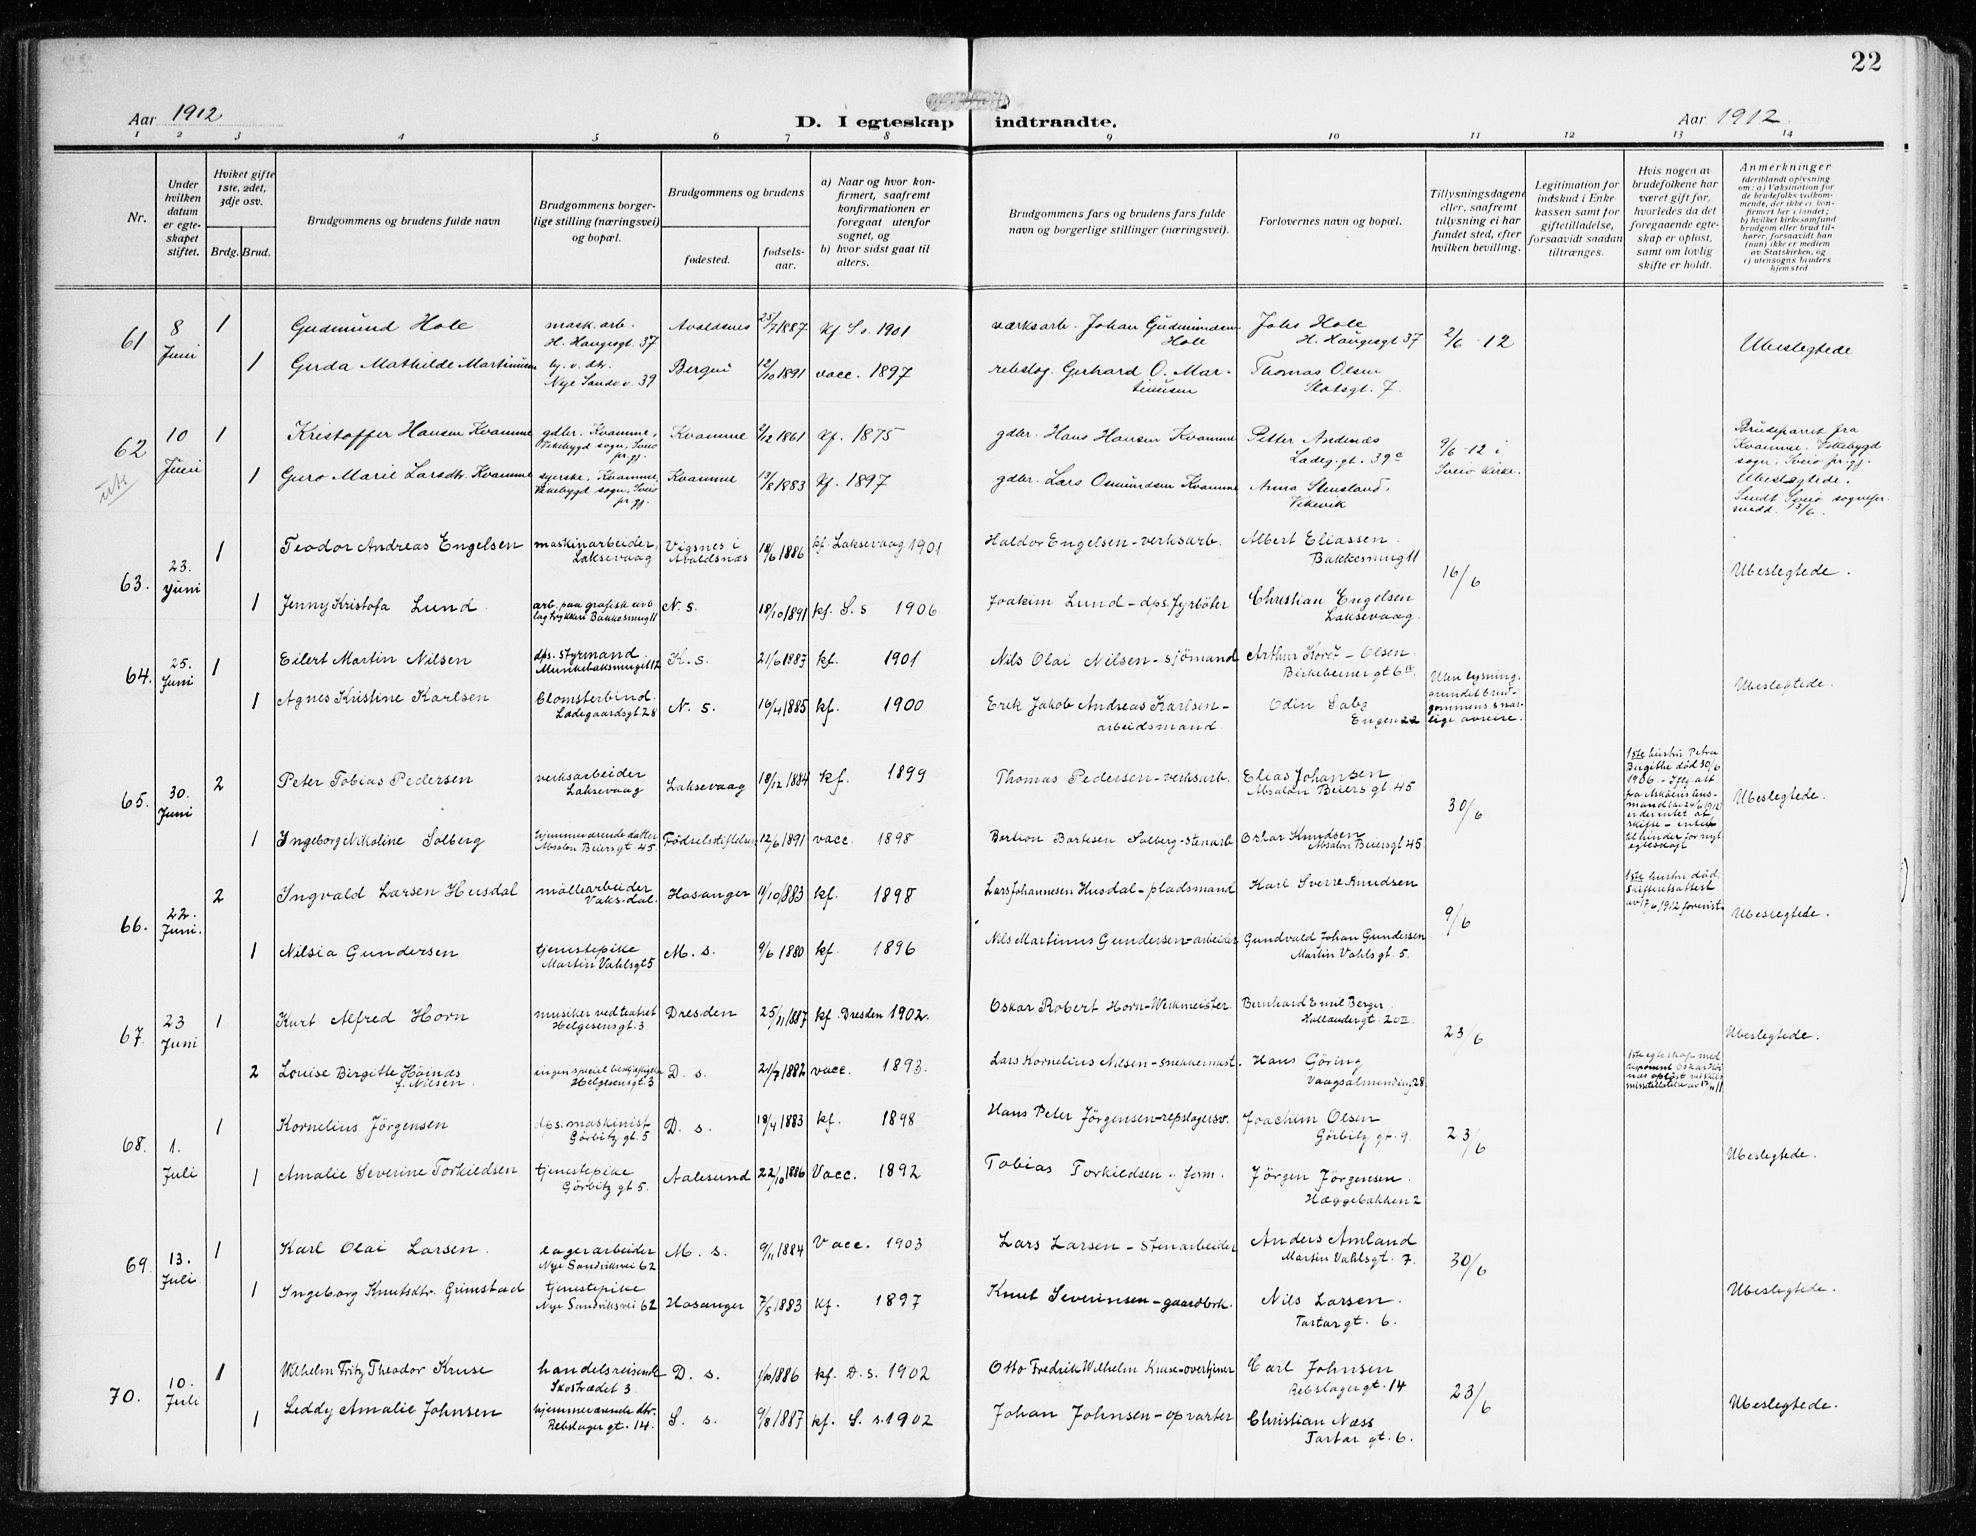 22
Aar 1912
D. I egteskap indtraadte.
Aar 1912.
1 2 3 4 5 6 7 8 9 10 11 12 13 14
Nr.
Under hvilken datum er egteskapet stiftet.
Hviket gifte 1ste, 2det, 3dje osv.
Brdg. Brud.
Brudgommens og brudens fulde navn
Brudgommens borgerlige stilling (næringsvei) og bopæl.
Brudgommens og brudens
fødested.
fødselsaar.
a) Naar og hvor konfirmert, saafremt konfirmationen er foregaat utenfor sognet, og
b) hvor sidst gaat til alters.
Brudgommens fars og brudens fars fulde navn og borgerlige stillinger (næringsvei).
Forlovernes navn og bopæl.
Tillysningsdagene eller, saafremt tillysning ei har fundet sted, efter hvilken bevilling.
Legitimation for indskud i Enkekassen samt for giftetilladelse, forsaavidt saadan tiltrænges.
Hvis nogen av brudefolkene har været gift før, hvorledes da det foregaaende egteskap er opløst, samt om lovlig skifte er holdt.
Anmerkninger (deriblandt oplysning om: a) Vaksination for brudefolks vedkommende, der ikke er konfirmert her i landet; b) hvilket kirkesamfund brudgom eller brud tilhører, forsaavidt han (hun) ikke er medlem av Statskirken, og c) utensogns bruders hjemsted
61 8 Juni 1 Gudmund Hole mask. arb. H. Haugesgt. 37 Avaldsnes 25/7 1887 kf S. s. 1901 værksarb. Johan Gudmundsen Hole Johs Hole H. Haugesgt 37 2/6 - 12 Ubeslegtede
1 Gerda Mathilde Martinusen hj. v. dtr. Nye Sandv. v. 39 Bergen 12/10 1891 vacc. 1897 rebslag. Gerhard O. Martinusen Thomas Olsen Slotsgt. 7.
62 10 Juni 1 Kristoffer Hansen Kvamme gdbr. Kvamme, Vikebygd sogn, Sveio pr.gj. Kvamme 2/12 1861 kf. 1875 gdbr. Hans Hansen Kvamme Petter Andenæs Ladeg. gt. 39c 9/6 - 12 i Sveio Kirke. Brudeparret fra Kvamme, Vikebygd sogn, Sveio pr. gj. Ubeslegtede. Sendt Sveio sognepr. medd. 13/6.
1 Guro Marie Larsdtr Kvamme syerske, Kvamme, Vikebygd sogn, Sveio pr.gj. Kvamme 13/8 1883 kf. 1897 gdbr. Lars Osmundsen Kvamme Anna Stensland, Vikevik
63. 23. Juni 1 Teodor Andreas Engelsen maskinarbeider, Laksevaag Vigsnes i Avaldsnæs 18/6 1886 kf Laksevaag 1901 Haldor Engelsen - verksarb. Albert Eliassen Bakkesmug 11 16/6 Ubeslegtede.
1 Jenny Kristofa Lund arb. paa grafisk avb lag trykkeri Bakkesmug 11 N. s. 18/10 1891 kf. S. s 1906 Joakim Lund - dps. fyrböter Christian Engelsen Laksevaag.
64. 25. Juni 1 Eilert Martin Nilsen dps. styrmand. Munkebæksmuget 12 K. s. 21/6 1887 kf. 1901 Nils Olai Nilsen - sjömand Arthur Koref - Olsen Birkebeiner gt 6 Uten lysning, grundet brudgommens snarlige avreise. Ubeslegtede.
1 Agnes Kristine Karlsen blomsterbind. Ladegaardsgt. 28 N. s. 16/4 1885 kf. 1900 Erik Jakob Andreas Karlsen - arbeidsmand. Odin Sabo Engen 22
65. 30. Juni 2 Peter Tobias Pedersen verksarbeider Laksevaag Laksevaag 18/12 1884 kf. 1899 Thomas Pedersen - verksarb. Elias Johansen Absalon Beiers gt. 45 30/6 1ste hustru Petra Birgithe död 30/6 1906. - Iflg. att fra Askøens lensmand av 24/6 1912 er der intet at skifte - intet til hinder for nyt egteskap Ubeslegtede.
1 Ingeborg Nikoline Solberg hjemmeværende datter Absalon Beiers gt. 45. Födselsstiftelsen 12/6 1891 vacc. 1898 Bertsen Solberg - stenarb. Oskar Knudsen Absalon Beiersgt 45.
66. 22. Juni. 2 Ingvald Larsen Husdal möllearbeider Vaksdal. Hosanger 11/10 1883 kf. 1898 Lars Johannesen Husdal - pladsmand Karl Sverre Knudsen 9/6 1ste hustru död, skifteretsattest av 17/6 1912 forevist. Ubeslegtede.
1 Nilsia Gundersen tjenestepike Martin Vahlsgt 5 M. s. 9/6 1880 kf. 1896 Nils Martinus Gundersen - arbeider Gundvald Johan Gundersen Martin Vahlsgt. 5.
67. 23 Juni 1 Kurt Alfred Horn musiker ved teatret Helgesensgt. 3 Dresden 25/11 1887 kf. Dresden 1902. Oskar Robert Horn - Werkmeister Bernhard Emil Berger Hollandergt. 20 II 23/6 Ubeslegtede.
2 Louise Birgitte Höinæs f. Nilsen. ingen speciel beskjæftigelse Helgesensgt. 3 D. s. 21/7 1882 vacc. 1893. Lars Kornelius Nilsen - snekkermest. Hans Göring Vaagsalmending 28. 1ste egteskap med Oskar Höinæs oplöst
68. 1. Juli 1 Kornelius Jörgensen dps. maskinist Görbitz gt. 5 D. s. 18/4 1883 kf. 1898 Hans Peter Jörgensen - repslagersv. Joachim Olsen Görbitz gt. 9. 23/6 Ubeslegtede.
1 Amalie Severine Torkildsen tjenestepike Görbitz gt 5. Aalesund 22/10 1886 Vacc. 1892 Tobias Torkildsen - form. Jörgen Jörgensen. Hæggebakken 2
69. 13. Juli 1 Karl Olai Larsen. lagerarbeider Nye Sandviksvei 62 M. s. 9/11 1884 Vacc. 1903 Lars Larsen - stenarbeider Anders Amland Martin Vahlsgt. 7. 30/6 Ubeslegtede.
1 Ingeborg Knutsdtr. Grimstad tjenestepike Nye Sandviksvei 62 Hosanger 7/5 1883 kf. 1897 Knut Severinsen - gaardbrk. Nils Larsen. Tartar gt. 6.
70. 10. Juli 1 Wilhelm Fritz Theodor Kruse handelsreisende Skostrædet 3 D. s. 1/10 1886 kf. D. s. 1902 Otto Fredrik Wilhelm Kruse - overtjener Carl Johnsen Rebslagergt. 14 23/6 Ubeslegtede.
1 Leddy Amalie Johnsen hjemmeværende dtr. Rebslager gt. 14. S. s. 9/8 1887 kf. S. s. 1902 Johan Johnsen - opvarter Christian Næss Tartar gt. 6.